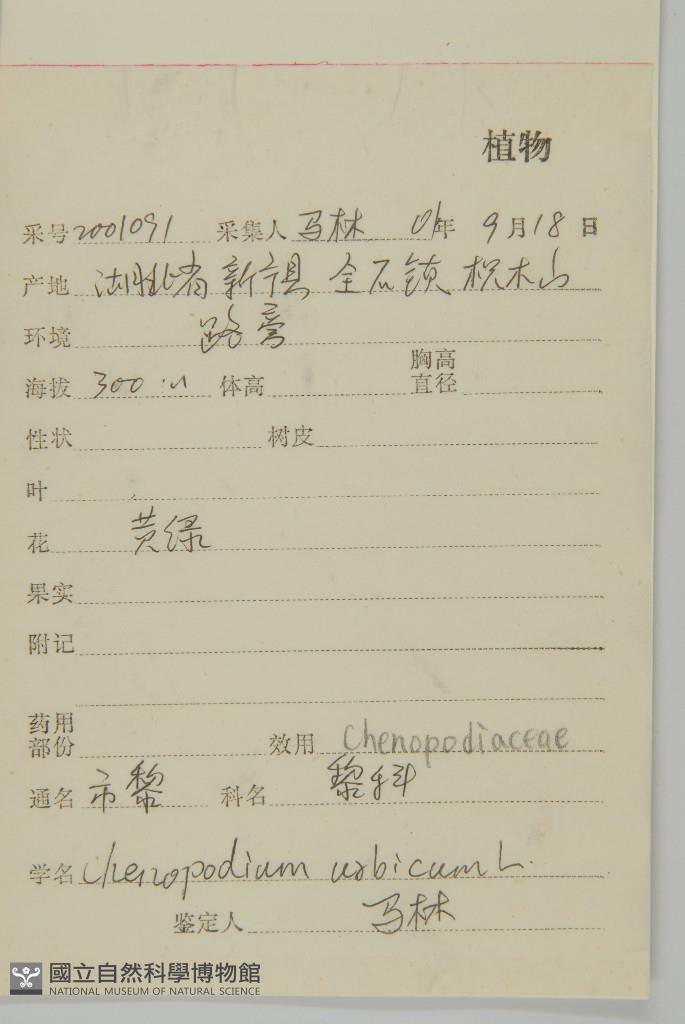 植物
采号 2001091 采集人 马林 01年 9月18日
产地 湖北省新 县 全石镇 木山
环境 路旁
胸高
海拔 300 m 体高 直径
性状 树皮
叶
花 黄绿
果实
附记
药用
部份 效用 Chenopodiaceae
通名 市黎 科名 黎科
学名 Chenopodium urbicum L.
鉴定人 马林
國立自然科學博物館
NATIONAL MUSEUM OF NATURAL SCIENCE